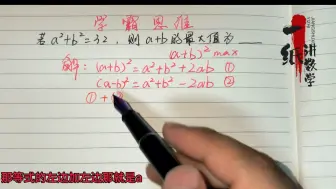 学霸思维
若a²+b²=32，则a+b的最大值为____
(a+b)² max
解：(a+b)²=a²+b²+2ab ①
(a-b)²=a²+b²-2ab ②
①+
一纸讲数学
那等式的左边加左边那就是a